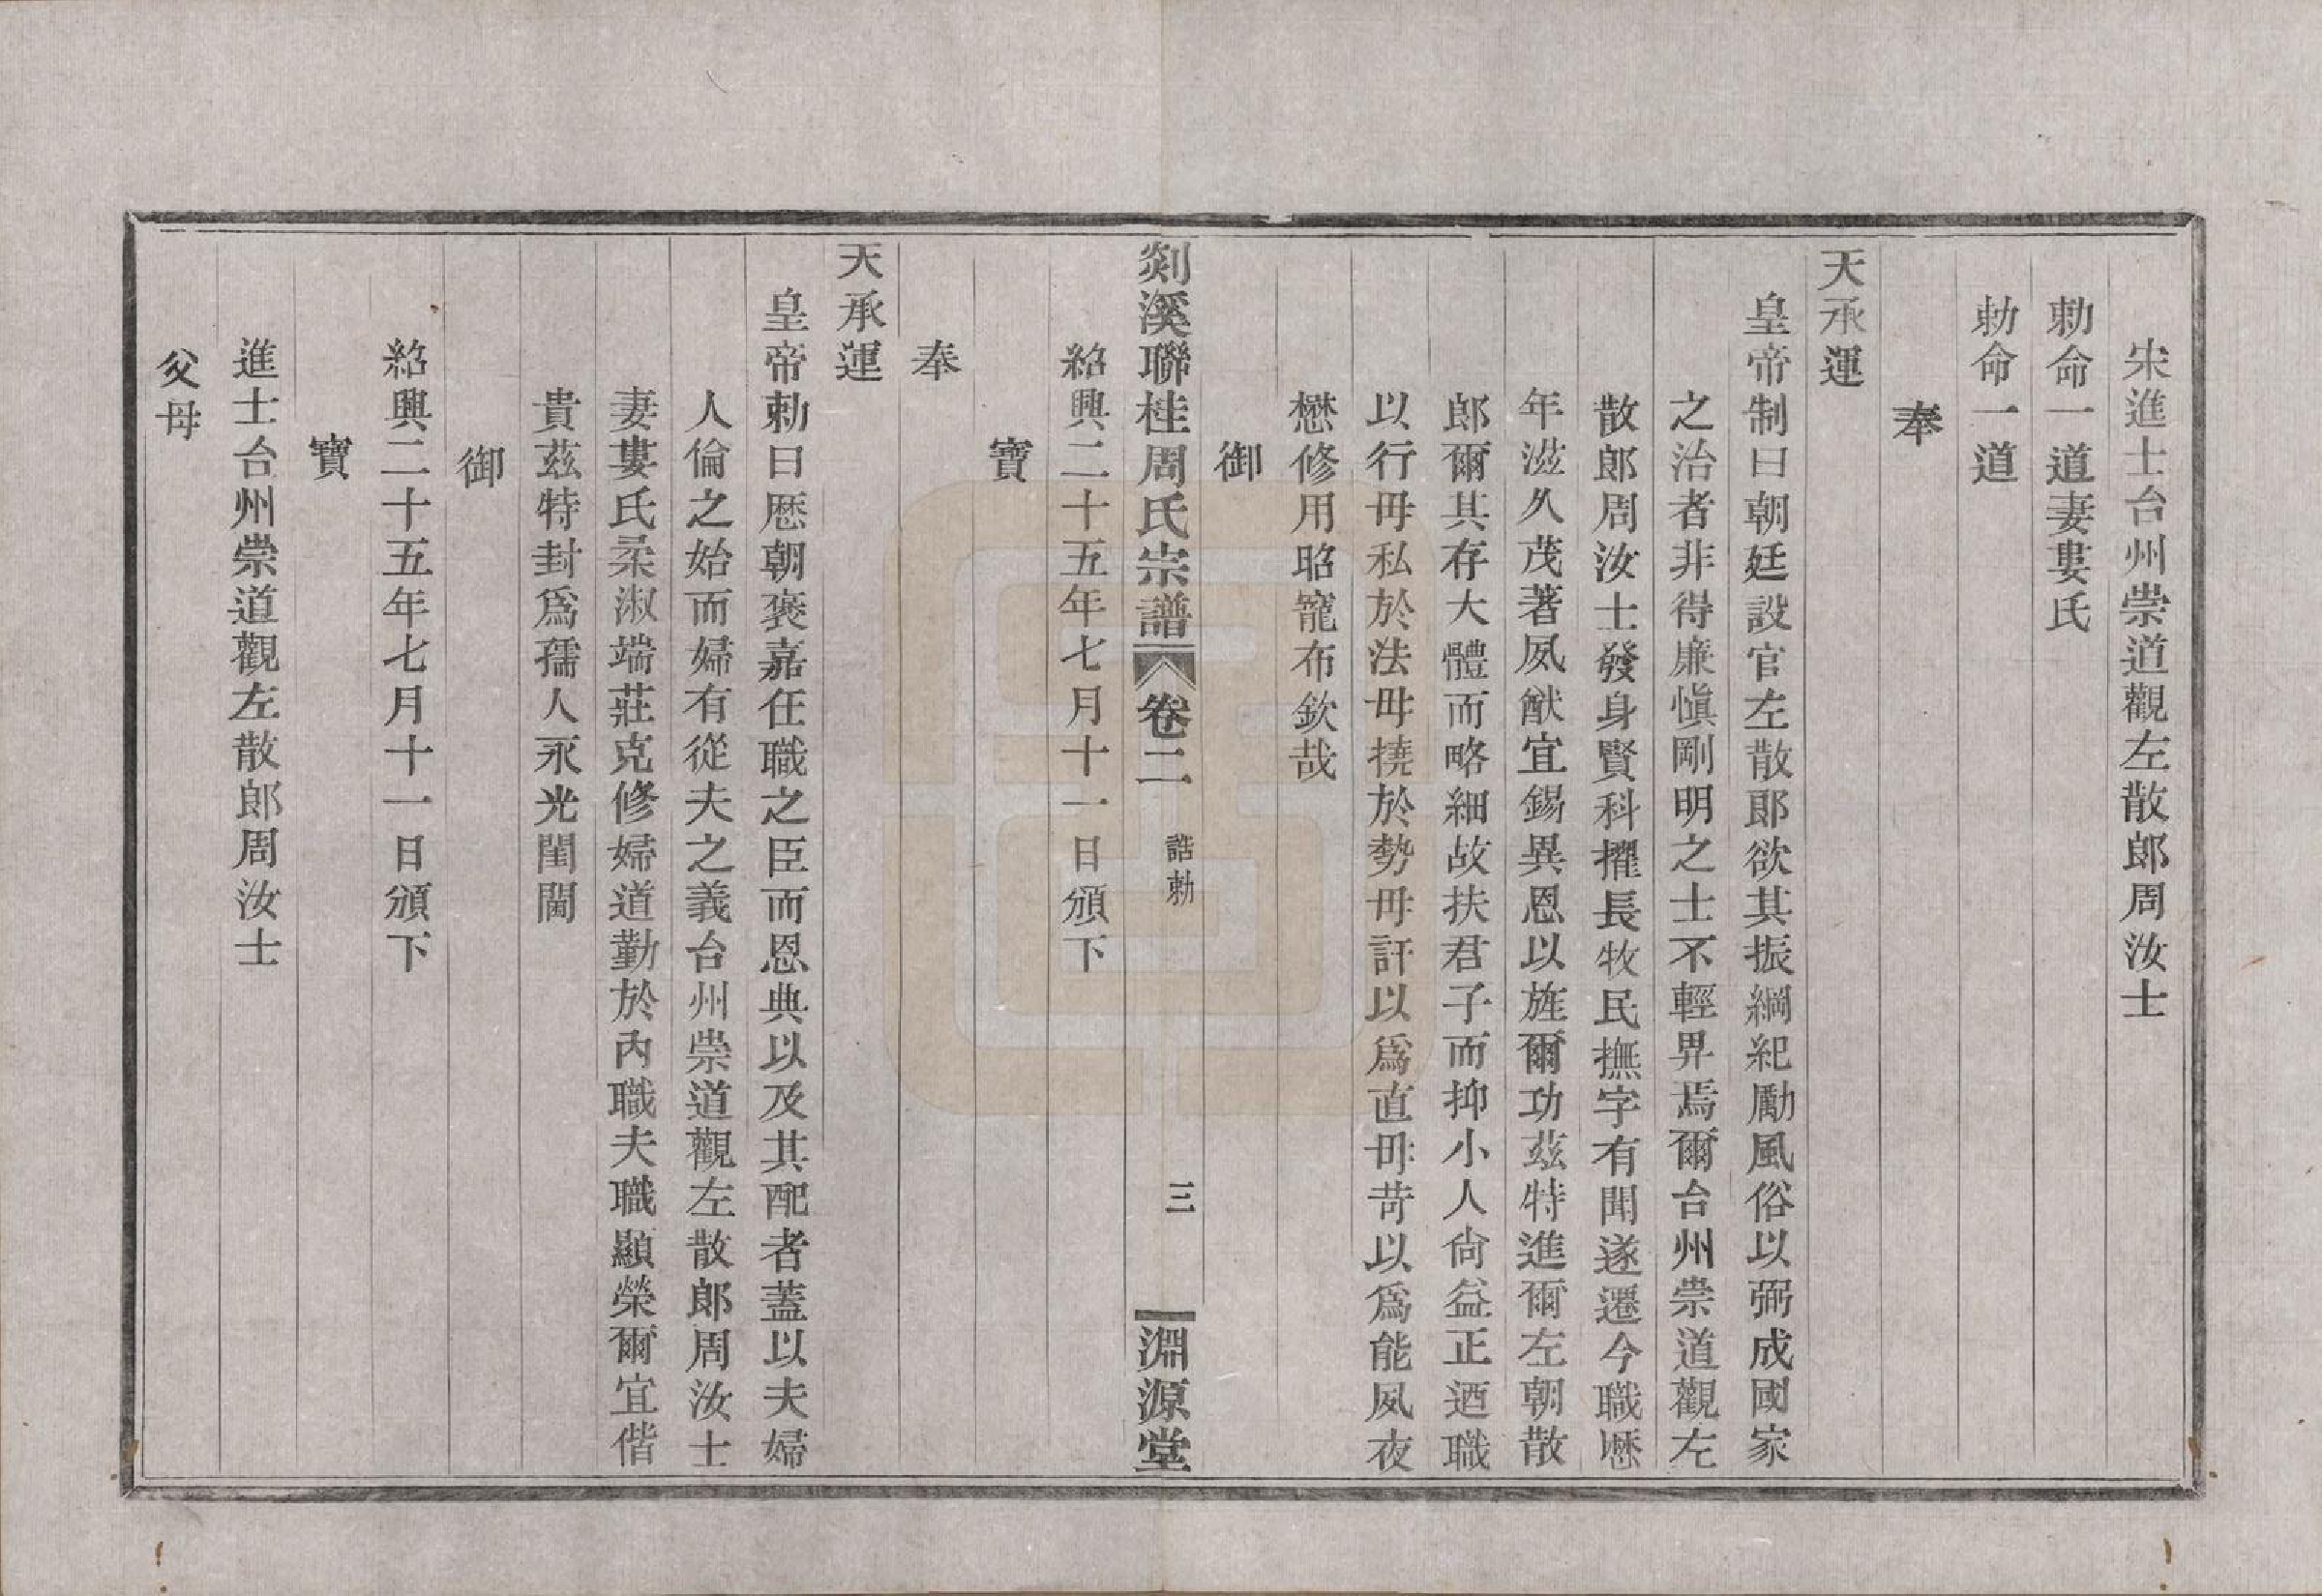 宋進士台州崇道觀左散郎周汝士
勅命一道妻婁氏
勅命一道
奉
天承運
皇帝制曰朝廷設官左散郎欲其振綱紀勵風俗以弼成國家
之治者非得廉愼剛明之士不輕畀焉爾台州崇道觀左
散郎周汝士發身賢科擢長牧民撫字有聞遂遷今職歷
年滋久茂著夙猷宜錫異恩以旌爾功茲特進爾左朝散
郎爾其存大體而略細故扶君子而抑小人尙益正迺職
以行毋私於法毋撓於勢毋訐以爲直毋苛以爲能夙夜
懋修用昭寵布欽哉
御
剡溪聯桂周氏宗譜 卷二 誥勅 三 淵源堂
紹興二十五年七月十一日頒下
寶
奉
天承運
皇帝勅曰歷朝褒嘉任職之臣而恩典以及其配者蓋以夫婦
人倫之始而婦有從夫之義台州崇道觀左散郎周汝士
妻婁氏柔淑端莊克修婦道勤於內職夫職顯榮爾宜偕
貴茲特封爲孺人永光閨閫
御
紹興二十五年七月十一日頒下
寶
進士台州崇道觀左散郎周汝士
父母